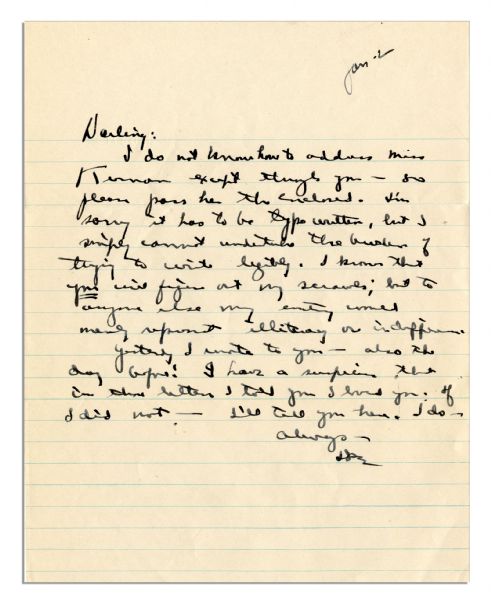 Jan-2
Darling:
I do not know how to address Miss
Kiernan except through you — so
please pass her the enclosed. I'm
sorry it has to be typewritten, but I
simply cannot undertake the burden of
trying to write legibly. I know that
you will figure out my scrawls; but to
anyone else my writing would
merely represent illiteracy or indifference.
Yesterday I wrote to you — also the
day before! I have a suspicion that
in those letters I told you I loved you: If
I did not — I'll tell you here. I do —
always —